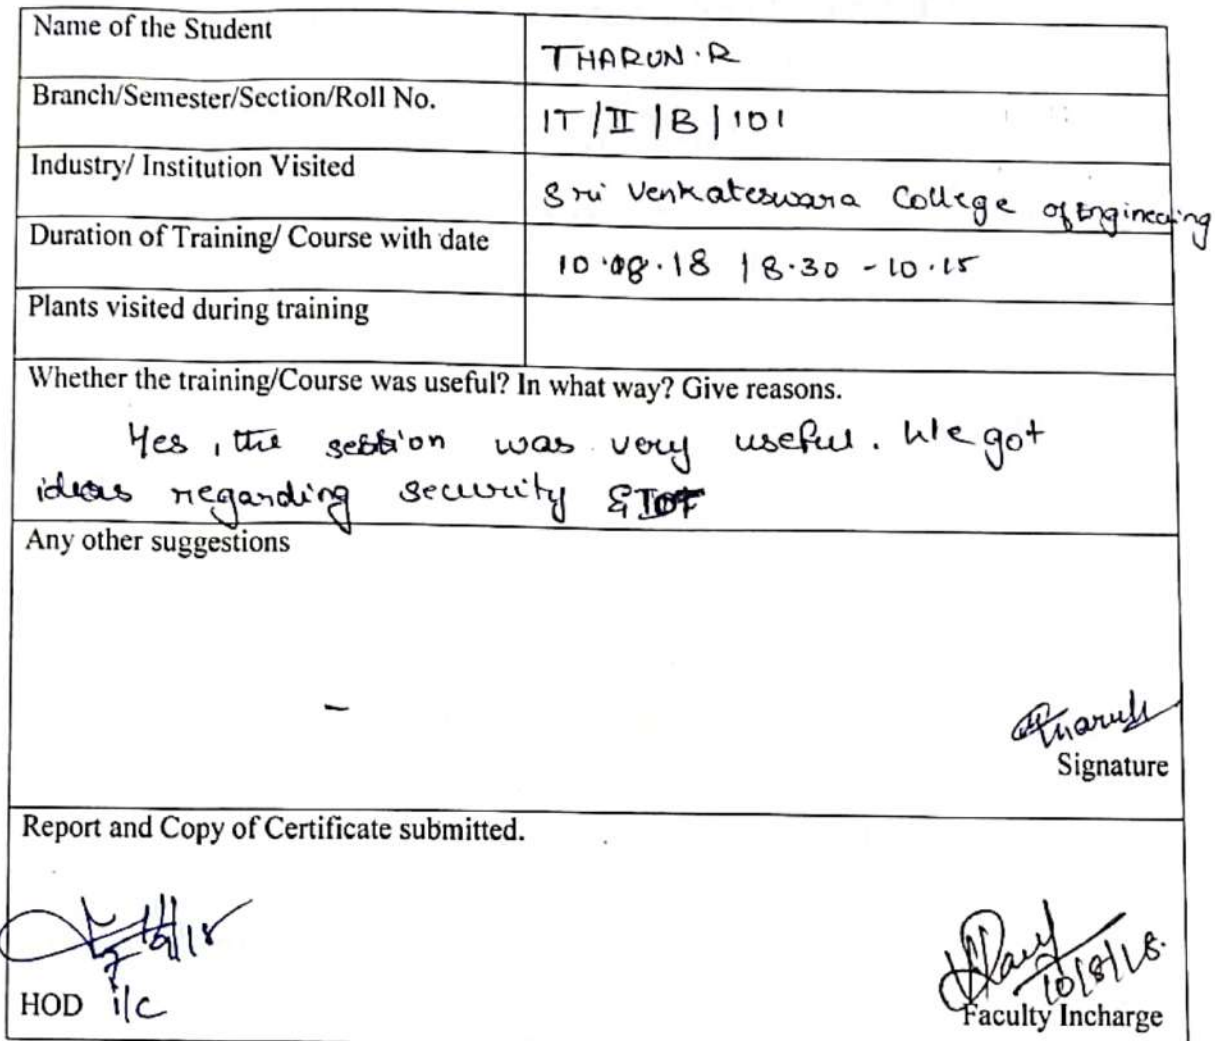 Name of the Student
THARUN.R
Branch/Semester/Section/Roll No.
IT/II/B/101
Industry/ Institution Visited
Sri Venkateswara College of Engineering
Duration of Training/ Course with date
10.08.18 | 8.30 - 10.15
Plants visited during training
Whether the training/Course was useful? In what way? Give reasons.
Yes, the session was very useful. We got
ideas regarding security & IOT
Any other suggestions
-
Signature
Report and Copy of Certificate submitted.
10/8/18.
HOD i/c
Faculty Incharge